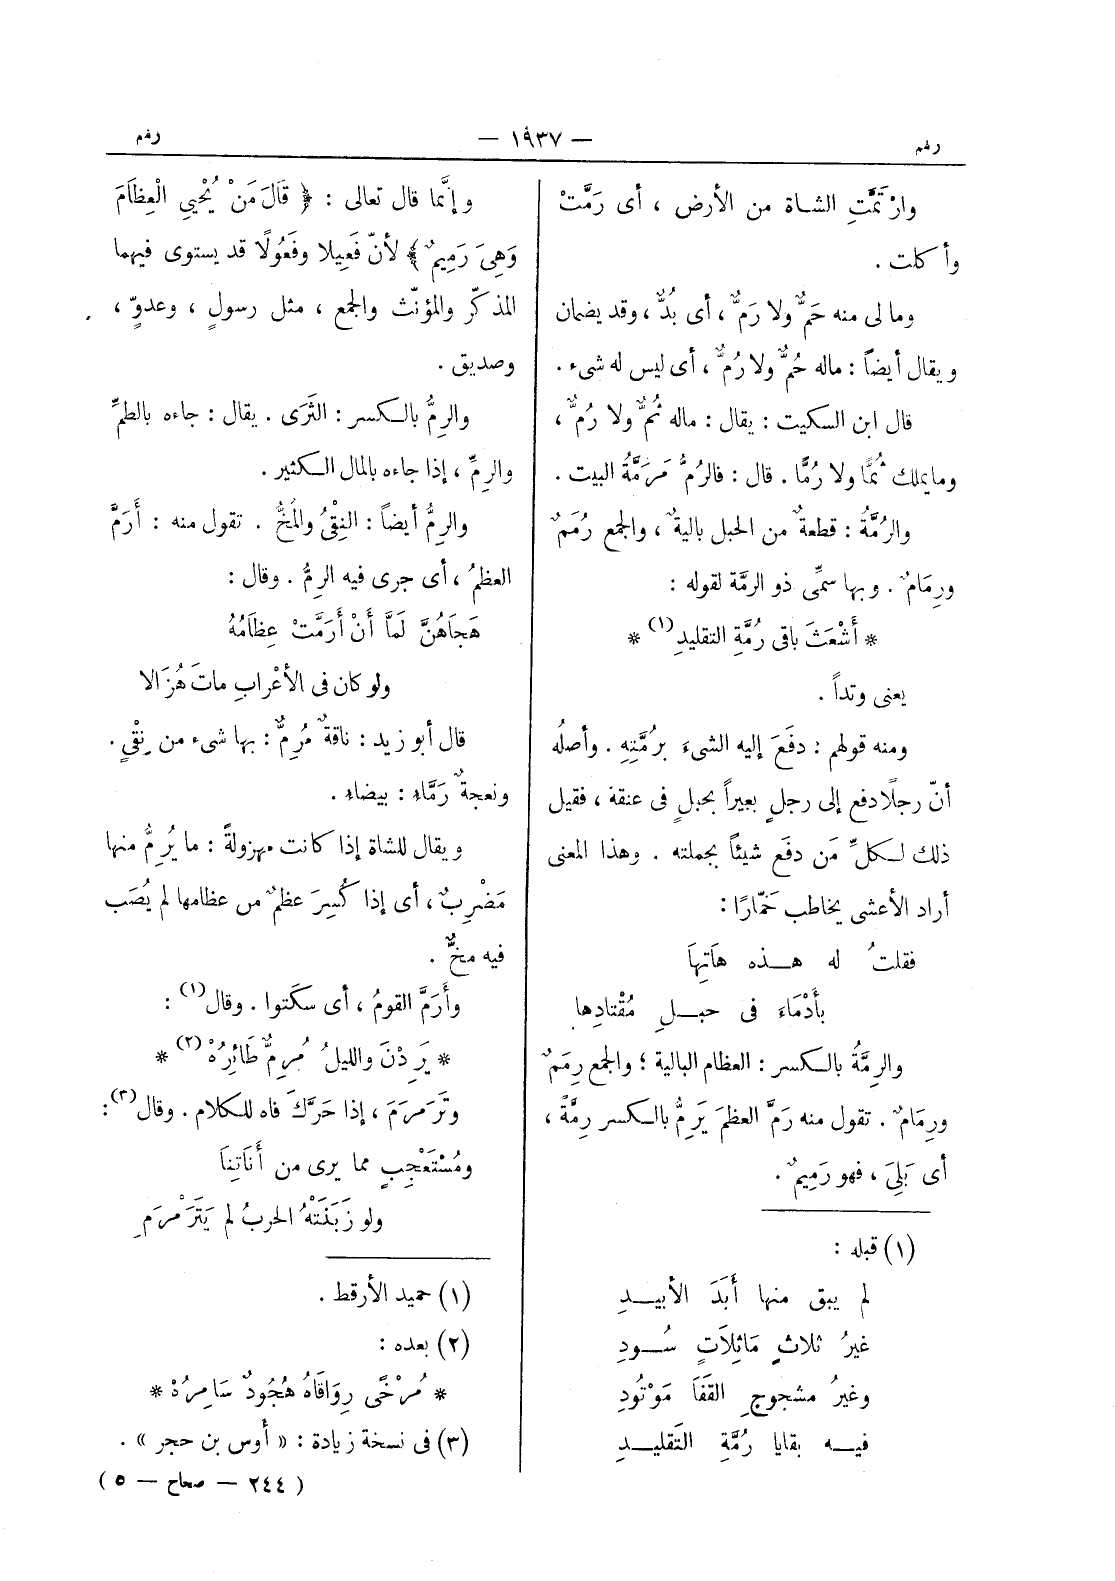 رقم
— ١٩٣٧ —
رقم
وارْتَمَّتِ الشاة من الأرض ، أى رَمَّتْ
وأكلت .
ومالى منه حَمٌّ ولا رَمٌّ ، أى بُدٌّ ، وقد يضمان
ويقال أيضاً : ماله حُمٌّ ولا رُمٌّ ، أى ليس له شىء .
قال ابن السكيت : يقال : ماله ثُمٌّ ولا رُمٌّ ،
ومايملك ثُمًّا ولا رُمًّا . قال : فالرُمُّ مَرَمَّةُ البيت .
والرُمَّةُ : قطعةٌ من الحبل باليةٌ ، والجمع رُمَمٌ
ورِمَامٌ . وبها سمِّى ذو الرمَّة لقوله :
* أَشْعَثَ باقى رُمَّةِ التقليدِ (١) *
يعنى وتداً .
ومنه قولهم : دفَعَ إليه الشىءَ برُمَّتِهِ . وأصلُه
أنّ رجلًا دفع إلى رجلٍ بعيراً بحبلٍ فى عنقة ، فقيل
ذلك لـكلِّ مَن دفَع شيئاً بجملته . وهذا المعنى
أراد الأعشى يخاطب خَمّارًا :
فقلتُ له هـــذه هَاتِهَا
بأَدْمَاءَ فى حبـــلِ مُقْتادِها
والرِمَّةُ بالـكسر : العظام البالية ؛ والجمع رِمَمٌ
ورِمَامٌ . تقول منه رَمَّ العظمَ يَرِمُّ بالـكسر رِمَّةً ،
أى بَلِىَ ، فهو رَمِيمٌ .
(١) قبله :
لم يبق منها أَبَدَ الأبيـــدِ
غيرُ ثلاثٍ مَاثِلَاتٍ سُـــودِ
وغيرُ مشجوجِ القَفَا مَوْتُودِ
فيـــه بقايا رُمَّةِ التَقليـــدِ
وإنَّما قال تعالى : ﴿ قَالَ مَنْ يُحْيِى الْعِظَامَ
وَهِىَ رَمِيمٌ ﴾ لأنّ فَعِيلا وفَعُولًا قد يستوى فيهما
المذكّر والمؤنّث والجمع ، مثل رسولٍ ، وعدوٍّ ،
وصديق .
والرِمُّ بالـكسر : الثَرَى . يقال : جاءه بالطمِّ
والرِمِّ ، إذا جاءه بالمال الـكثير .
والرِمُّ أيضاً : النِقْىُ والمُخُّ . تقول منه : أَرَمَّ
العظمُ ، أى جرى فيه الرِمُّ . وقال :
هَجَاهُنَّ لَمَّا أَنْ أَرَمَّتْ عِظَامُهُ
ولو كان فى الأعْرابِ ماتَ هُزَالا
قال أبو زيد : ناقةٌ مُرِمٌّ : بها شىء من نِقْىٍ .
ونعجةٌ رَمَّاءِ : بيضاءِ .
ويقال للشاة إذا كانت مهزولةً : ما يُرِمُّ منها
مَضْرِبٌ ، أى إذا كُسِرَ عظمٌ من عظامها لم يُصَب
فيه مخٌّ .
وأَرَمَّ القومُ ، أى سكَتوا . وقال (١) :
* يَرِدْنَ والليلُ مُرِمٌّ طَائِرُهْ (٢) *
وتَرَمرَمَ ، إذا حَرَّكَ فاه للـكلام . وقال (٣) :
ومُسْتَعْجِبٍ مما يرى من أَنَاتِنَا
ولو زَبَنَتْهُ الحربُ لم يَتَرَمْرَمِ
(١) حميد الأرقط .
(٢) بعده :
* مُرْخًى رِوَاقَاهُ هُجُودٌ سَامِرُهْ *
(٣) فى نسخة زيادة : « أَوس بن حجر » .
( ٢٤٤ — صحاح — ٥ )